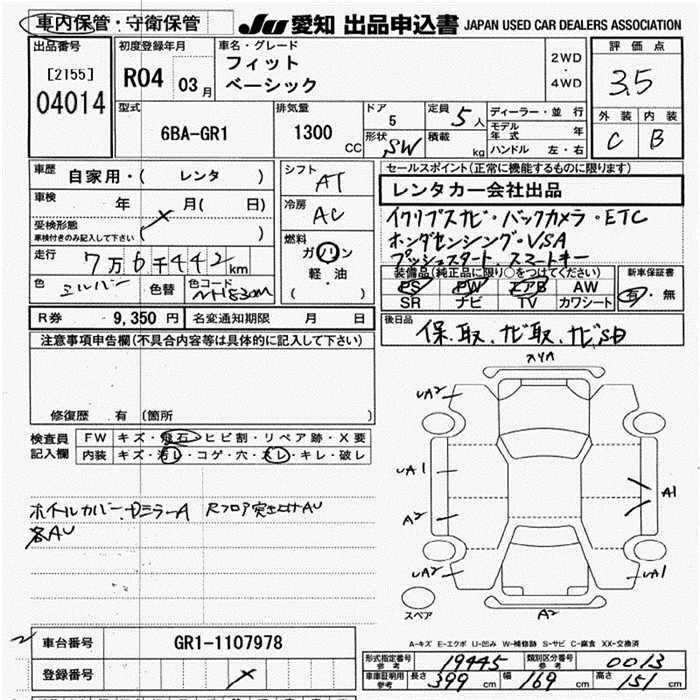 車内保管・守衛保管
JU 愛知 出品申込書 JAPAN USED CAR DEALERS ASSOCIATION
出品番号
[2155]
04014
初度登録年月
R04 03月
車名・グレード
フィット
ベーシック
2WD
・
4WD
評価点
3.5
外装 内装
C B
型式
6BA-GR1
排気量
1300 CC
ドア
5
形状
SW
定員 5人
積載 kg
ディーラー・並行
モデル年式 年
ハンドル 左・右
車歴
自家用・( レンタ )
車検 年 月( 日)
受検形態
車検付きのみ記入して下さい ( )
走行 7万6千442km
色 シルバー 色替 色コード NH830M
シフト
AT
冷房
AC
燃料
ガソリン
軽・油
( )
セールスポイント(正常に機能するものに限ります)
レンタカー会社出品
イクリプスナビ・バックカメラ・ETC
ホンダセンシング・VSA
プッシュスタート、スマートキー
装備品(純正品に限り○をつけてください)
PS PW エアB AW
SR ナビ TV カワシート
新車保証書
有・無
R券 9,350 円 名変通知期限 月 日
後日品
保、取、ナビ取、ナビSD
注意事項申告欄(不具合内容等は具体的に記入して下さい)
修復歴 有 (箇所 )
検査員
記入欄
FW キズ・飛石・ヒビ割・リペア跡・X要
内装 キズ・汚レ・コゲ・穴・スレ・キレ・破レ
ホイルカバー、DミラーA Rフロア突上げAU
各AU
UA2
UA1
A2
UA2
A1
UA1
A2
スペア
A-キズ E-エクボ U-凹み W-補修跡 S-サビ C-腐食 XX-交換済
車台番号 GR1-1107978
登録番号
形式指定番号
参考
19445
類別区分番号
参考
0013
車庫証明用
参考
長さ 399 cm 幅 169 cm 高さ 151 cm